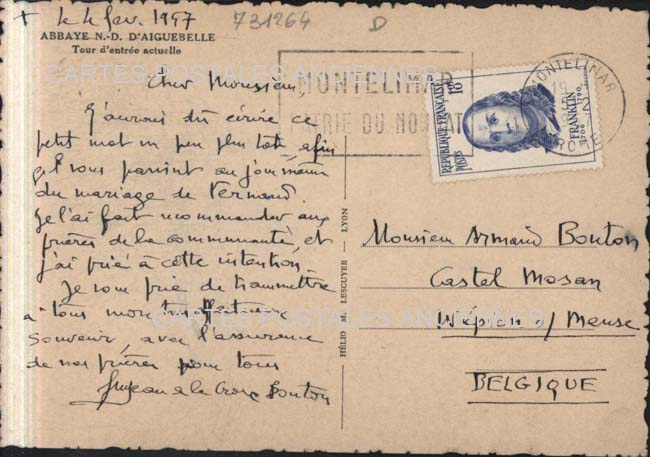 + le 4 fev. 1957
731264 D
ABBAYE N.-D. D'AIGUEBELLE
Tour d'entrée actuelle
CARTES POSTALES ANCIENNES
Cher Monsieur,
J'aurais dû écrire ce
petit mot un peu plus tôt, afin
qu'il vous parvint au jour même
du mariage de Fernand.
Je l'ai fait recommander aux
prières de la communauté, et
j'ai prié à cette intention.
Je vous prie de transmettre
à tous mon
souvenir, avec l'assurance
de nos prières pour tous
Jean de la Croix Bouton
HÉLIO M. LESCUYER - LYON
MONTELIMAR
DU NOUGAT
MONTELIMAR
DROME
RÉPUBLIQUE FRANÇAISE
POSTES
18F
FRANKLIN
1706 1790
Monsieur Armand Bouton
Castel Mosan
Wépion s/ Meuse
BELGIQUE
CARTES POSTALES ANCIENNES